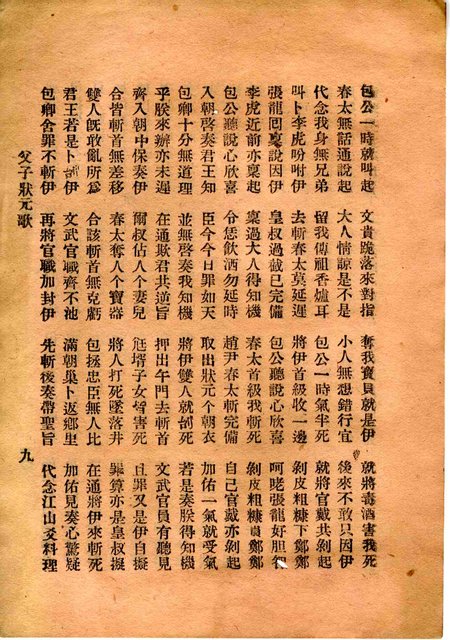 包公一時就叫起 文貴跪落來對指 奪我寶貝就是伊 就將毒酒害我死
春太無話通說起 大人情諒是不是 小人無想錯行宜 後來不敢只因伊
代念我身無兄弟 留我傳祖香爐耳 包公一時氣半死 就將官戴共剝起
叫卜李虎吩咐伊 去斬春太莫延遲 將伊首級收一邊 剝皮粗糠下鄭鄭
張龍回稟說因伊 皇叔過截已完備 包公聽說心欣喜 呵咾張龍好胆智
李虎近前亦稟起 稟過大人得知機 春太首級我斬死 剝皮粗糠鄭鄭
包公聽說心欣喜 令恁飲酒勿延時 趙尹春太斬完備 自己官戴亦剝起
入朝啓奏君王知 臣今今日罪如天 取出狀元个朝衣 加佑一氣就受氣
包卿十分無道理 並無啓奏我知機 將伊雙人就創死 若是奏朕得知機
乎朕來辦亦未遲 在通欺君共逆旨 押出午門去斬首 文武官員有聽見
齊入朝中保奏伊 爾叔佔人个妻兒 尪壻子女皆害死 且罪又是伊自擬
合皆斬首無差移 春太奪人个寶器 將人打死墜落井 罪算亦是皇叔擬
雙人既敢亂所爲 合該斬首無克虧 包拯忠臣無人比 在通將伊來斬死
君王若是卜創伊 文武官職齊不池 滿朝巢卜返鄉里 加佑見奏心驚疑
包卿舍罪不斬伊 再將官職加封伊 先斬後奏帶聖旨 代念江山爻料理
父子狀元歌 九